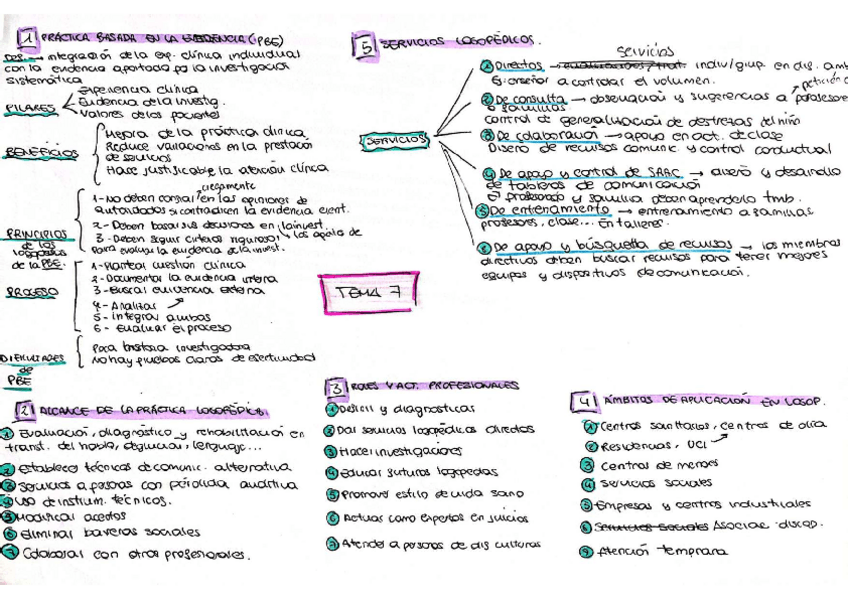 1 PRÁCTICA BASADA EN LA EVIDENCIA (PBE)
DEF. → integración de la exp. clínica individual
con la evidencia aportada por la investigación
sistemática
PILARES
Experiencia clínica
Evidencia de la investig.
Valores de los pacientes
BENEFICIOS
Mejora de la práctica clínica
Reduce variaciones en la prestación
de servicios
Hace justificable la atención clínica
PRINCIPIOS
de los
logopedas
de la PBE.
ciegamente
1- No deben confiar en las opiniones de
autoridades si contradicen la evidencia cient.
2- Deben basar sus decisiones en la invest.
3- Deben seguir criterios rigurosos
para evaluar la evidencia de la invest.
PROCESO
1- Plantear cuestión clínica
2- Documentar la evidencia interna
3- Buscar evidencia externa
4- Analizar
5- integrar ambas
6- Evaluar el proceso
DIFICULTADES
de
PBE
Poca historia investigadora
No hay pruebas claras de efectividad
5 SERVICIOS LOGOPÉDICOS.
SERVICIOS
servicios
1 Directos → indiv/grup. en dis. amb
Ej: enseñar a controlar el volumen.
petición
2 De consulta → observación y sugerencias a profesores
o familias
control de generalización de destrezas del niño
3 De colaboración → apoyo en act. de clase
Diseño de recursos comunic. y control conductual
4 De apoyo y control de SAAC → diseño y desarrollo
de tableros de comunicación
el profesorado y familia deben aprenderlo tmb.
5 De entrenamiento → entrenamiento a familias,
profesores, clase... En talleres.
6 De apoyo y búsqueda de recursos → los miembros
directivos deben buscar recursos para tener mejores
equipos y dispositivos de comunicación.
TEMA 7
2 ALCANCE DE LA PRÁCTICA LOGOPÉDICA.
1 Evaluación, diagnóstico y rehabilitación en
transt. del habla, deglución, lenguaje...
2 Establecer técnicas de comunic. alternativa
3 Servicios a personas con pérdida auditiva
4 Uso de instrum. técnicos.
5 Modificar acentos
6 Eliminar barreras sociales
7 Colaborar con otros profesionales.
3 ROLES Y ACT. PROFESIONALES
1 Definir y diagnosticar
2 Dar servicios logopédicos directos
3 Hacer investigaciones
4 Educar futuros logopedas
5 Promover estilo de vida sano
6 Actuar como expertos en juicios
7 Atender a personas de dis culturas
4 ÁMBITOS DE APLICACIÓN EN LOGOP.
1 Centros sanitarios, centros de día
2 Residencias, UCI
3 Centros de menores
4 Servicios sociales
5 Empresas y centros industriales
6 Servicios Sociales Asociac. discap.
9 Atención temprana